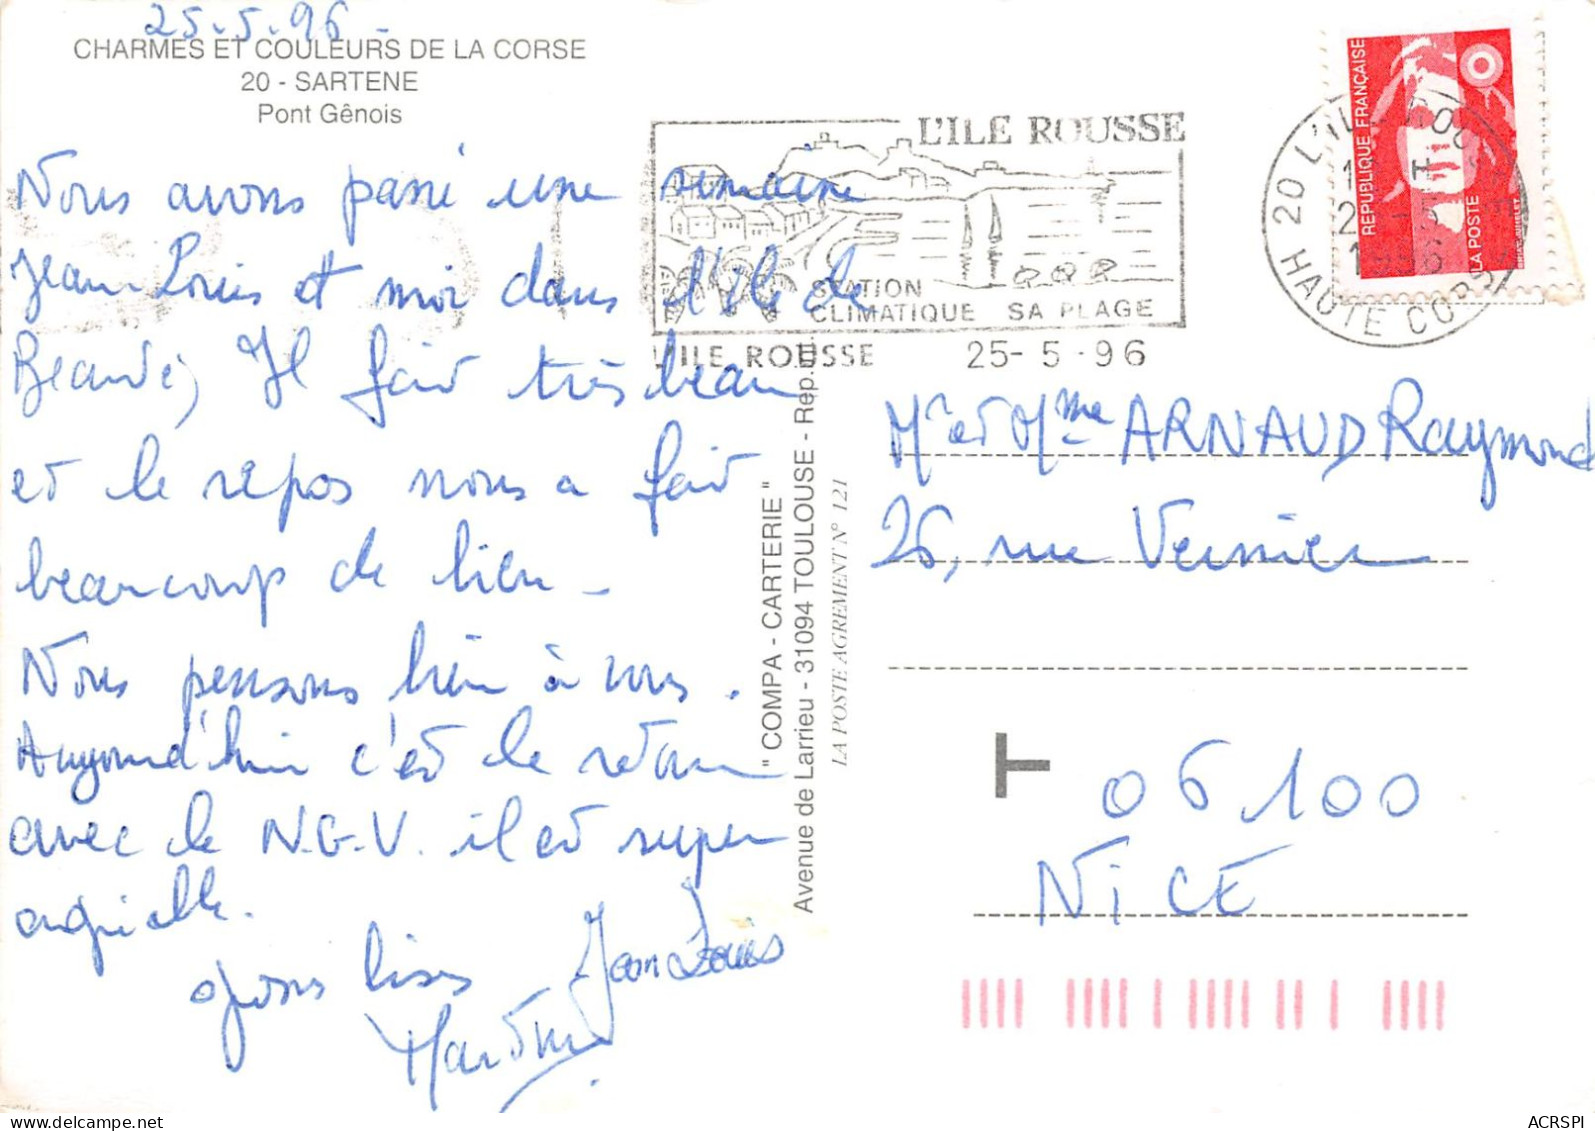 25-5-96-
CHARMES ET COULEURS DE LA CORSE
20 - SARTENE
Pont Gênois
Nous avons passé une semaine
Jean-Louis et moi dans l'île de
Beauté, Il fait très beau
et le repos nous a fait
beaucoup de bien -
Nous pensons bien à vous.
Aujourd'hui c'est le retour
avec le N.G.V. il est super
agréable.
gros bises Jean Louis
Martine
" COMPA - CARTERIE "
Avenue de Larrieu - 31094 TOULOUSE - Rep.
LA POSTE AGREMENT N° 121
L'ILE ROUSSE
STATION
CLIMATIQUE SA PLAGE
L'ILE ROUSSE 25-5-96
20 L'ILE ROUSSE
HAUTE CORSE
REPUBLIQUE FRANÇAISE
LA POSTE
Mr et Mme ARNAUD Raymond
26, rue Vernier
T
06100
NICE
ACRSPI